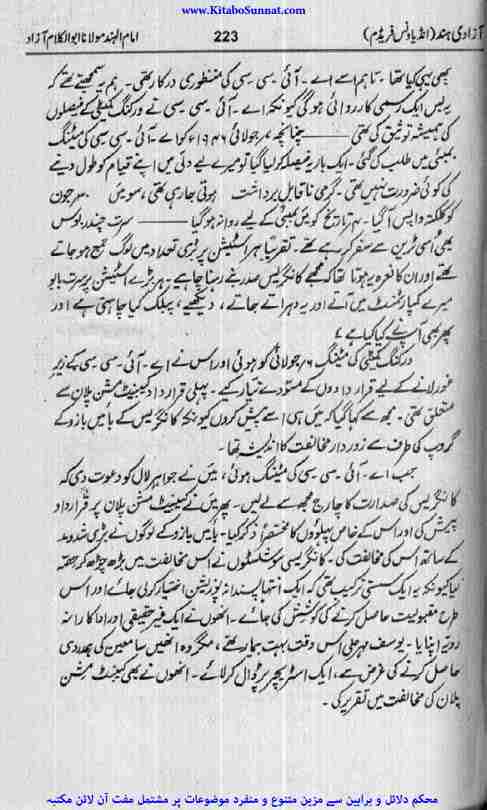 www.KitaboSunnat.com
آزادی ہند (انڈیا ونس فریڈم)
223
امام الہند مولانا ابوالکلام آزاد
بھی یہی کیا تھا۔ تاہم اسے اے۔ آئی۔ سی۔ سی کی منظوری درکار تھی۔ ہم یہ سمجھتے تھے کہ
یہ بس ایک رسمی کارروائی ہوگی کیونکہ اے۔ آئی۔ سی۔ سی نے ورکنگ کمیٹی کے فیصلوں
کی ہمیشہ توثیق کی تھی ——— چنانچہ ۷ر جولائی ۱۹۴۶ء کو اے۔ آئی۔ سی۔ سی کی میٹنگ
بمبئی میں طلب کی گئی۔ ایک بار یہ فیصلہ کر لیا گیا تو میرے لیے دلی میں اپنے قیام کو طول دینے
کی کوئی ضرورت نہیں تھی۔ گرمی ناقابل برداشت ہوتی جا رہی تھی، سو میں ۳۰ر جون
کو کلکتہ واپس آ گیا۔ ۴ر تاریخ کو میں بمبئی کے لیے روانہ ہو گیا ——— سرت چندر بوس
بھی اُسی ٹرین سے سفر کر رہے تھے۔ تقریباً ہر اسٹیشن پر بڑی تعداد میں لوگ جمع ہو جاتے
تھے اور ان کا نعرہ یہ ہوتا تھا کہ مجھے کانگریس صدر بنے رہنا چاہیے۔ ہر بڑے اسٹیشن پر سرت بابو
میرے کمپارٹمنٹ میں آتے اور یہ دہراتے جاتے، دیکھیے، پبلک کیا چاہتی ہے اور
پھر بھی آپ نے کیا کیا ہے؟
ورکنگ کمیٹی کی میٹنگ ۶ر جولائی کو ہوئی اور اس نے اے۔ آئی۔ سی۔ سی کے زیر
غور لانے کے لیے قراردادوں کے مسودے تیار کیے۔ پہلی قرارداد کیبینٹ مشن پلان سے
متعلق تھی۔ مجھ سے کہا گیا کہ میں ہی اسے پیش کروں کیونکہ کانگریس کے بائیں بازو کے
گروپ کی طرف سے زوردار مخالفت کا اندیشہ تھا۔
جب اے۔ آئی۔ سی۔ سی کی میٹنگ ہوئی، میں نے جواہر لال کو دعوت دی کہ
کانگریس کی صدارت کا چارج مجھ سے لے لیں۔ پھر میں نے کیبینٹ مشن پلان پر قرارداد
پیش کی اور اس کے خاص پہلوؤں کا مختصراً ذکر کیا۔ بائیں بازو کے لوگوں نے بڑی شد و مد
کے ساتھ اس کی مخالفت کی۔ کانگریسی سوشلسٹوں نے اس مخالفت میں بڑھ چڑھ کر حصہ
لیا کیونکہ یہ ایک سستی ترکیب تھی کہ ایک انتہا پسندانہ پوزیشن اختیار کر لی جائے اور اس
طرح مقبولیت حاصل کرنے کی کوشش کی جائے۔ انھوں نے ایک غیر حقیقی اور اداکارانہ
رویہ اپنایا۔ یوسف مہر علی اس وقت بہت بیمار تھے، مگر وہ انھیں سامعین کی ہمدردی
حاصل کرنے کی غرض سے، ایک اسٹریچر پر ڈال کر لائے۔ انھوں نے بھی کیبینٹ مشن
پلان کی مخالفت میں تقریر کی۔
محکم دلائل و براہین سے مزین متنوع و منفرد موضوعات پر مشتمل مفت آن لائن مکتبہ